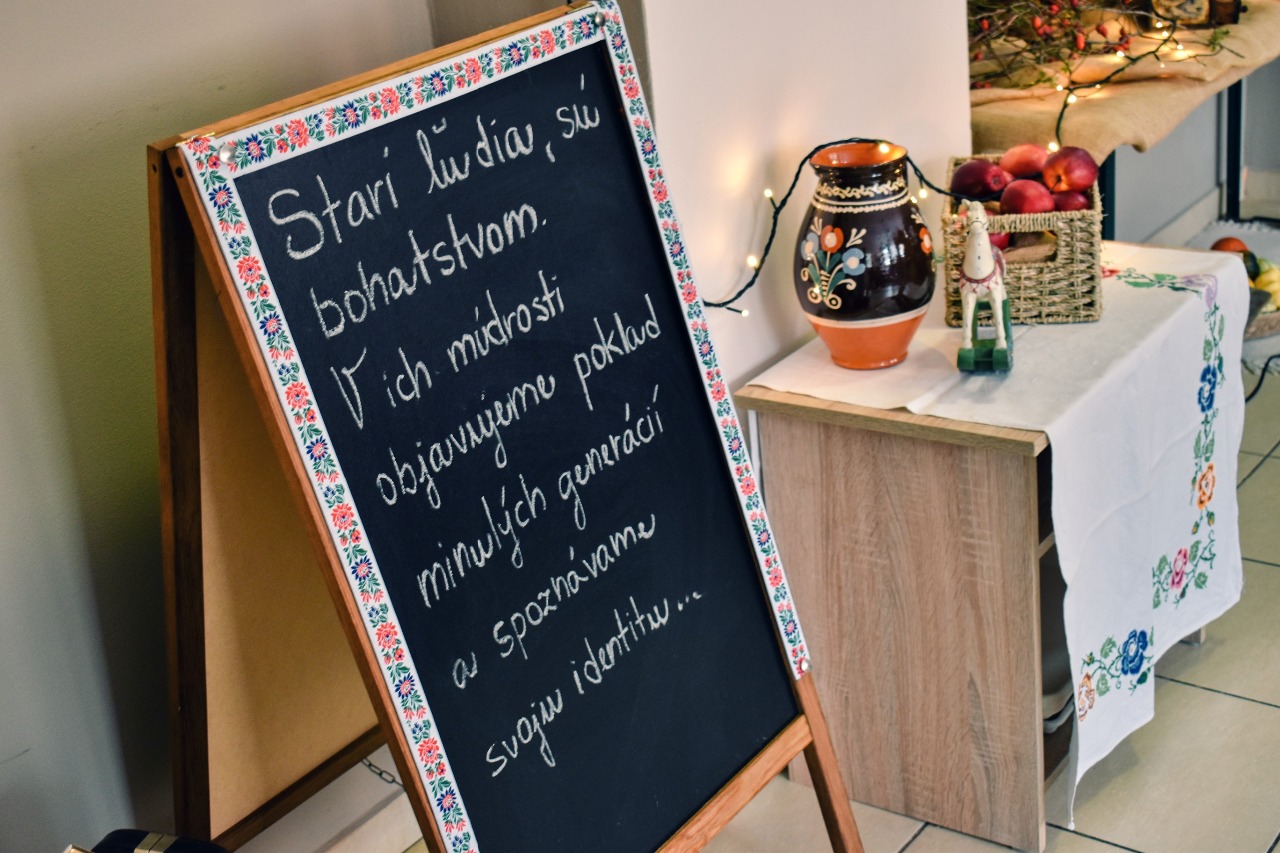 Starí ľudia, sú
bohatstvom.
V ich múdrosti
objavujeme poklad
minulých generácií
a spoznávame
svoju identitu...